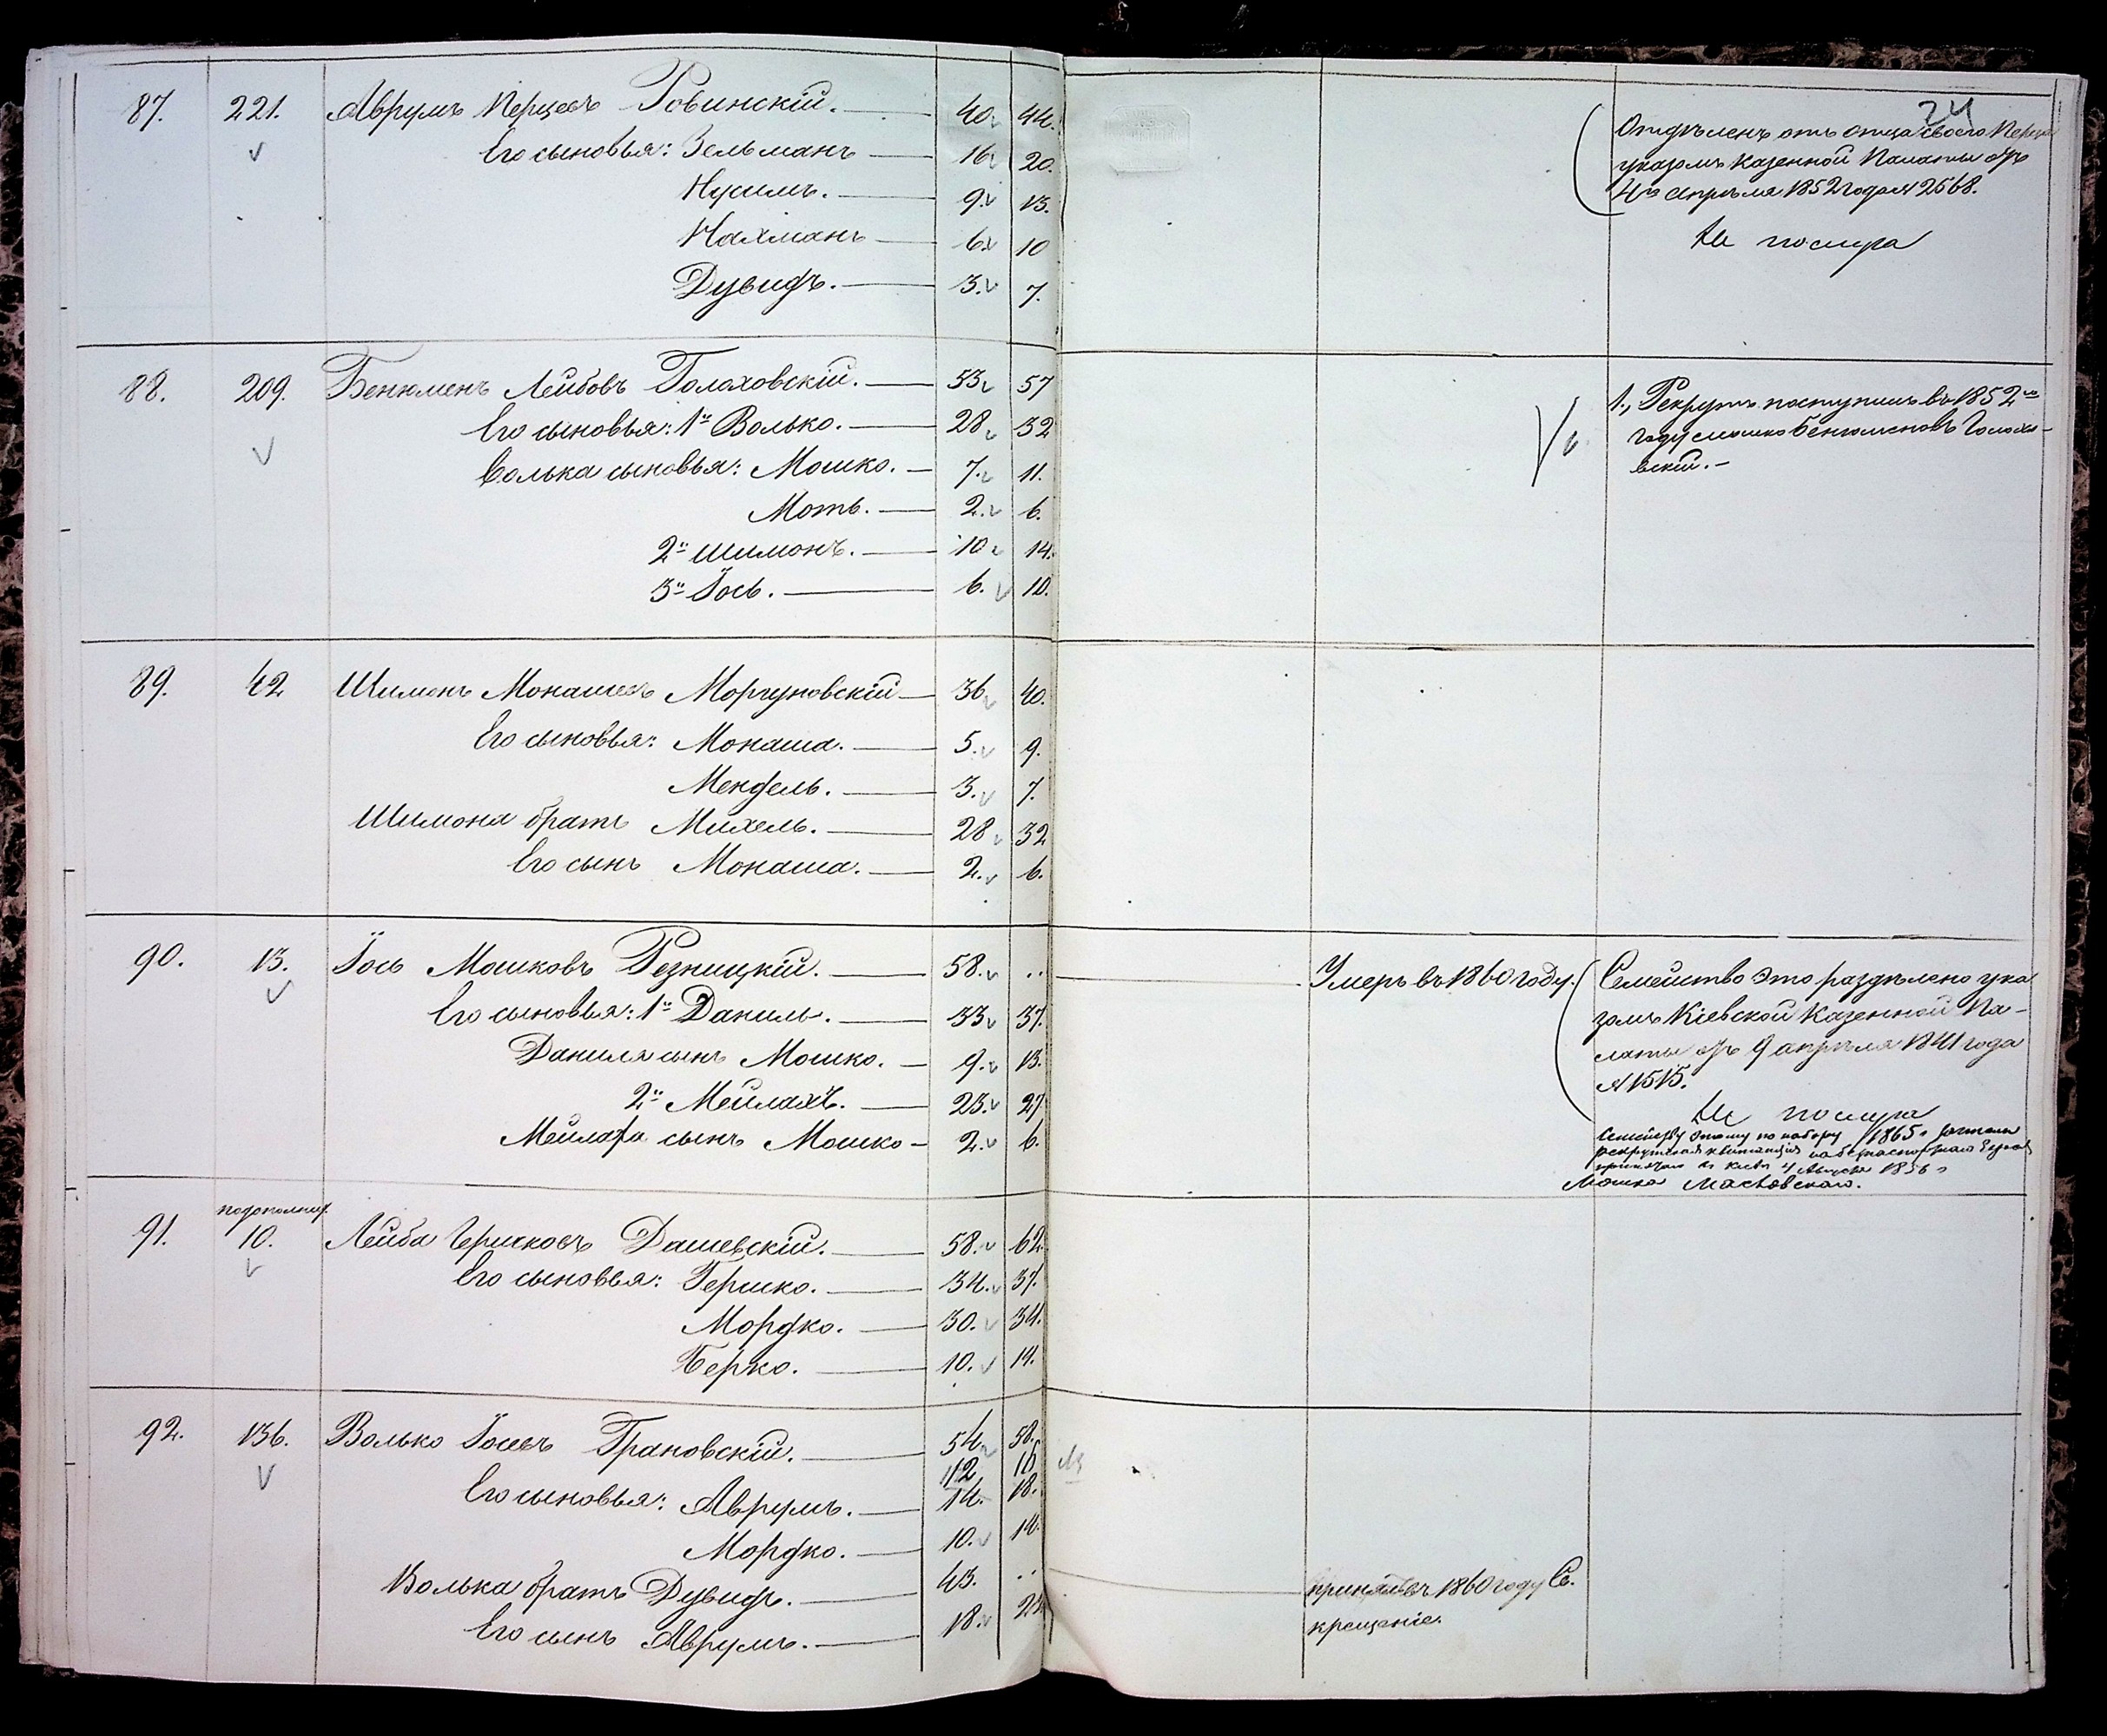 24
87. 221. Аврумъ Перцевъ Ровинскій. 40. 44.
Его сыновья: Зельманъ 16 20.
Нусимъ. 9. 13.
Нахманъ 6. 10
Дувидъ. 3. 7.
Отдѣленъ отъ отца своего Перца
указомъ Казенной Палаты отъ
4го Апрѣля 1852 года № 2568.
88. 209. Бенюменъ Лейбовъ Голаховскій. 53 57
Его сыновья: 1й Волько. 28 32
Волька сыновья: Мошко. 7. 11.
Моть. 2. 6.
2й Шимонъ. 10 14.
3й Іось. 6. 10.
1., Рекрутъ поступилъ въ 1852мъ
году Мошко Бенюменовъ Голахо-
вскій.-
89. 42 Шимонъ Монашевъ Моргуновскій 36 40.
Его сыновья: Монаша. 5. 9.
Мендель. 3. 7.
Шимона братъ Михель. 28 32
Его сынъ Монаша. 2. 6.
90. 13. Іось Мошковъ Резницкій. 58. .. Умеръ въ 1860 году.
Его сыновья: 1й Даниль. 33 37.
Даниля сынъ Мошко. 9. 13.
2й Мейлахъ. 23. 27
Мейлаха сынъ Мошко 2. 6.
Семейство это раздѣлено ука
зомъ Кіевской Казенной Па-
латы отъ 9 апрѣля 1841 года
№ 1515.
Семейству этому по набору 1865 г зачтена
рекрутская квитанція за безпаспортнаго Еврея
4 Августа 1856 г
Мошка Масловскаго.
подополнит.
91. 10. Лейба Гершковъ Дашевскій. 58. 62
Его сыновья: Гершко. 34. 37.
Мордко. 30. 34.
Берко. 10. 14.
92. 136. Волько Іосевъ Грановскій. 54. 58.
12 16
Его сыновья: Аврумъ. 14. 18.
Мордко. 10. 14.
Волька братъ Дувидъ. 43. .. принялъ въ 1860 году Св.
крещеніе.
Его сынъ Аврумъ. 18. 22